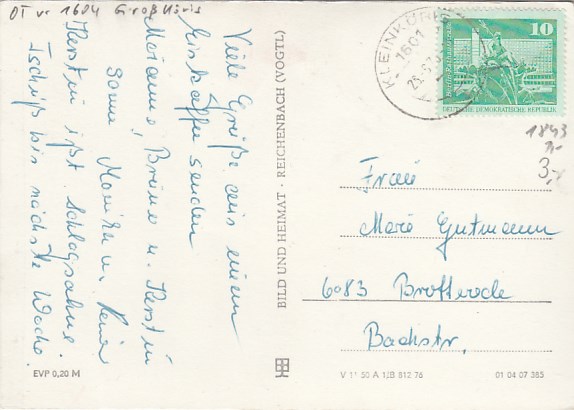 OT v. 1604 Groß Köris
Viele Grüße aus einem
Eiskaffee senden
Marianne, Bruno u. Kerstin
sowie Monika u. Reiner
Kerstin ißt Schlagsahne.
Tschüß bis nächste Woche.
EVP 0,20 M
BILD UND HEIMAT · REICHENBACH (VOGTL)
KLEINKÖRIS
1601
10
DEUTSCHE DEMOKRATISCHE REPUBLIK
1843
3,-
Frau
Marie Gutmann
6083 Brotterode
Bachstr.
V 11 50 A 1/B 812 76
01 04 07 385